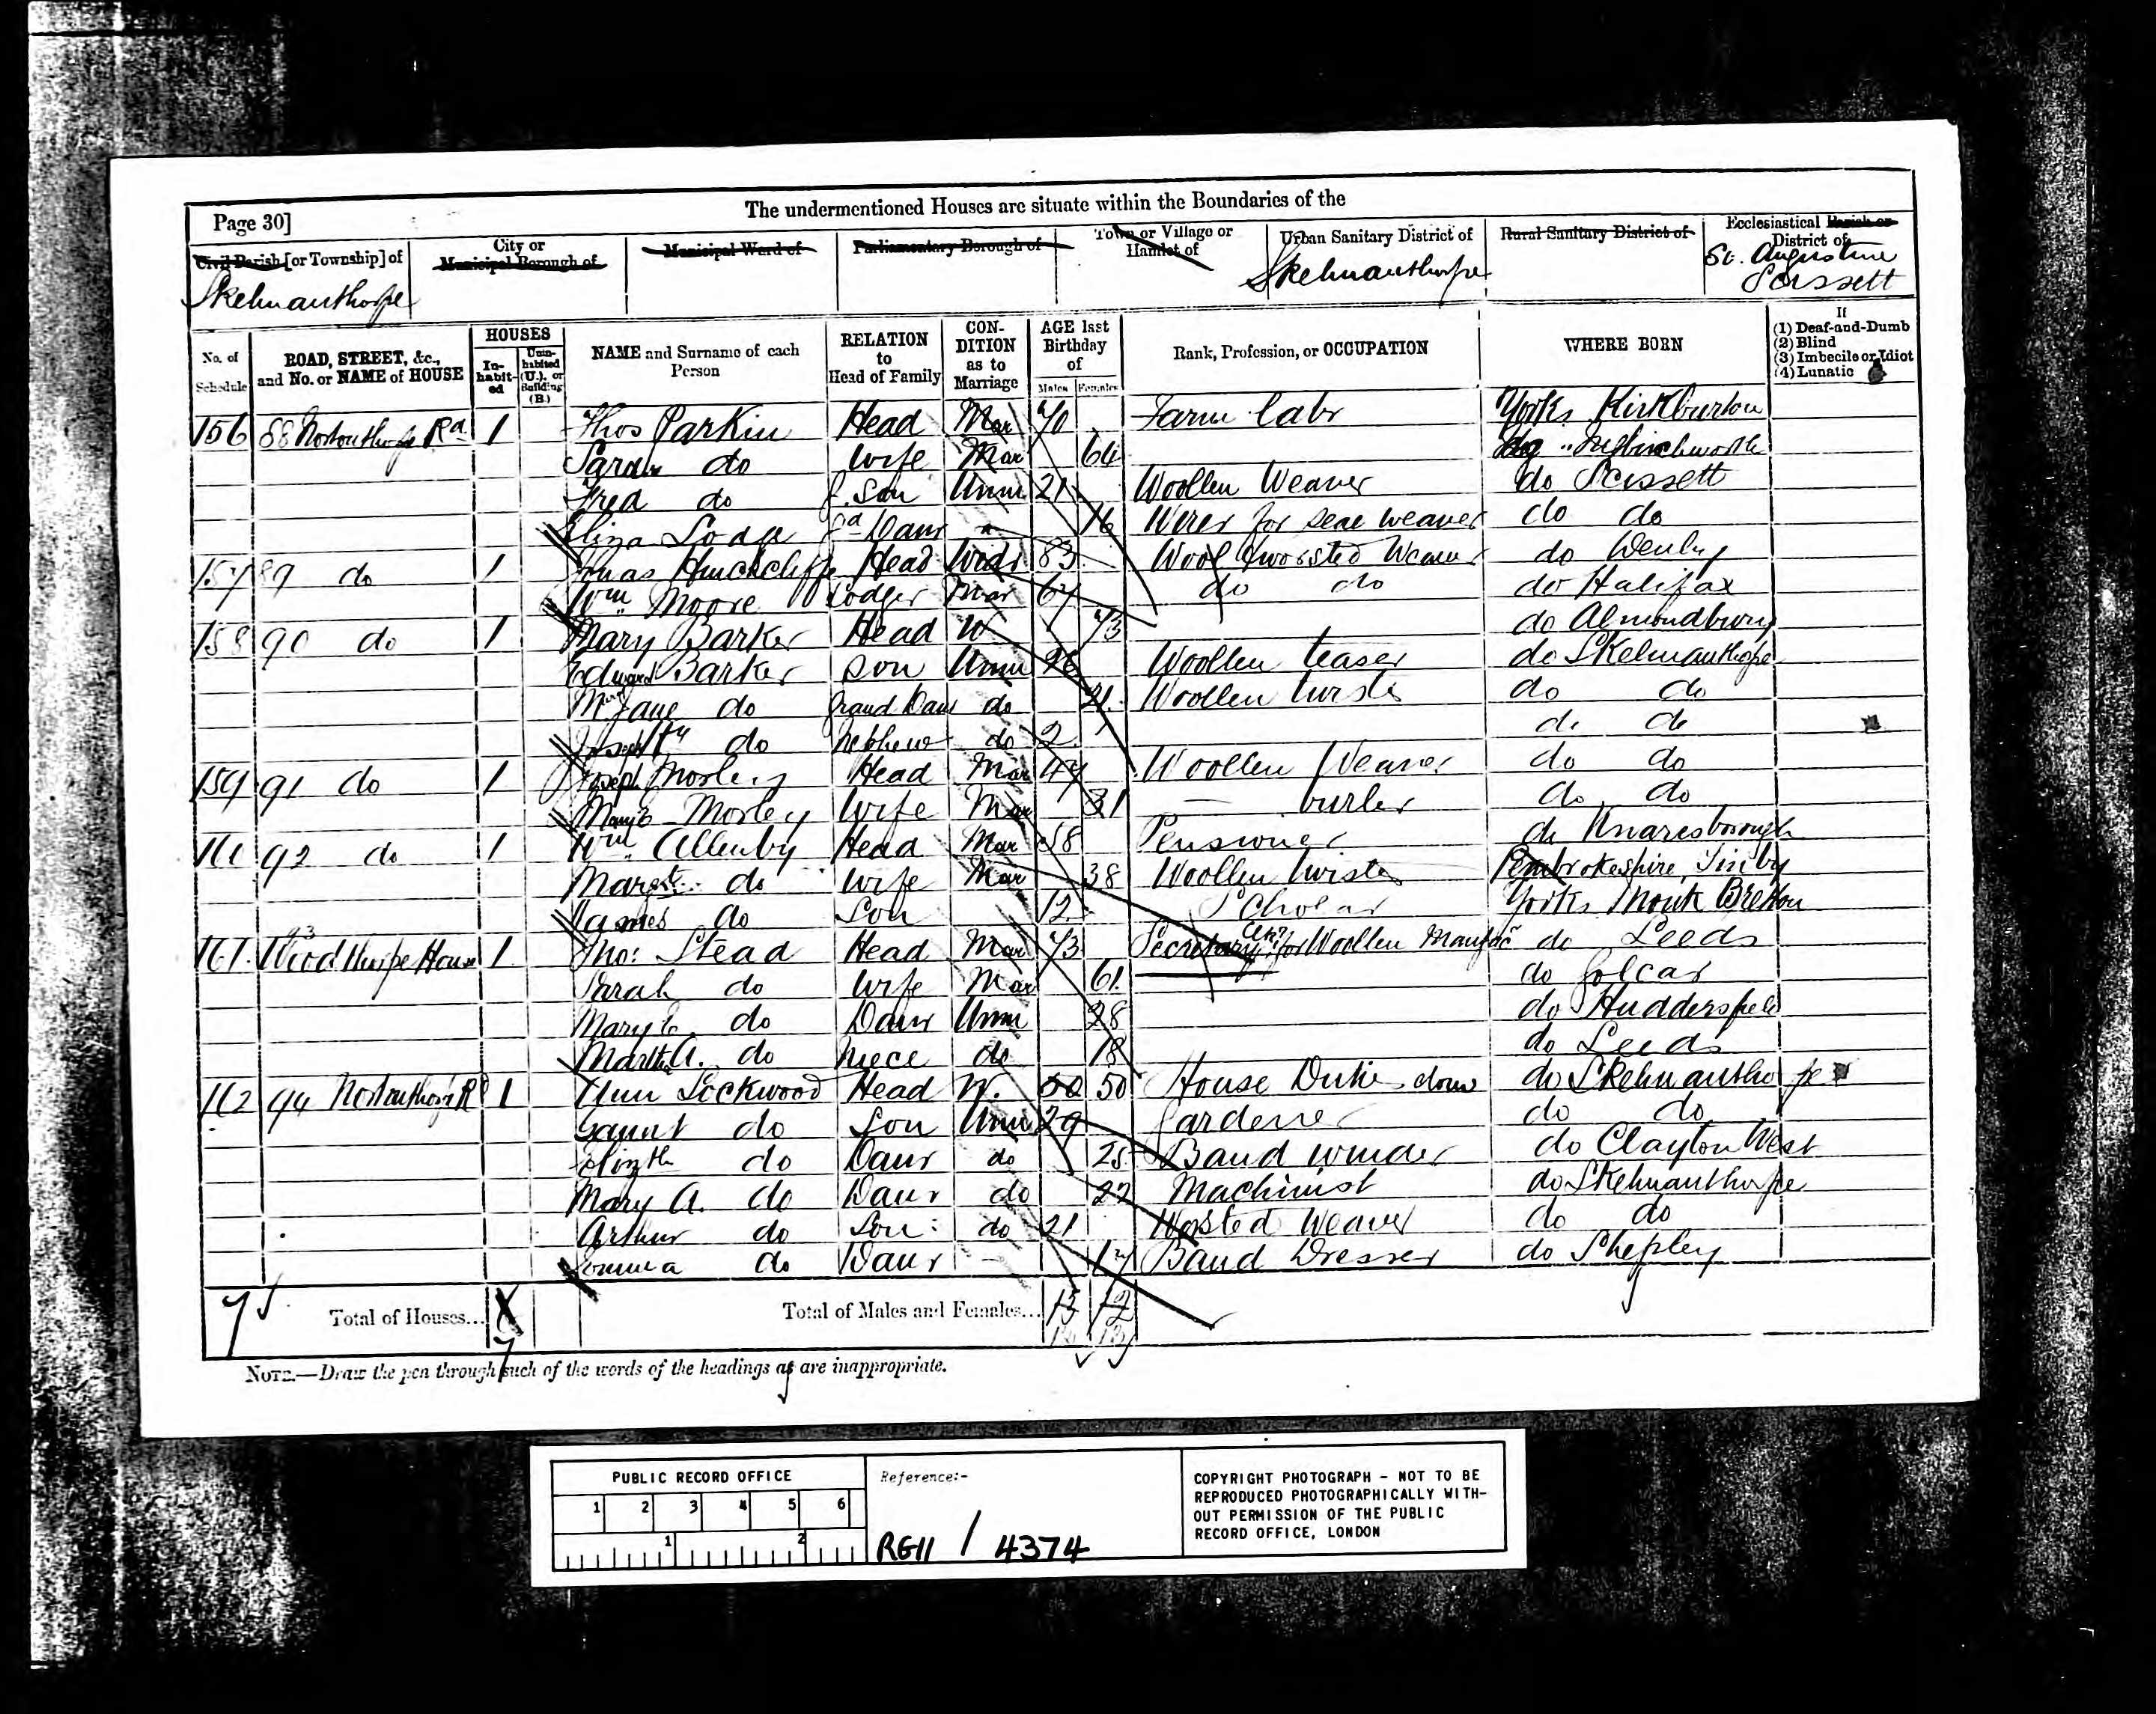 Page 30]
The undermentioned Houses are situate within the Boundaries of the
Civil Parish [or Township] of
Skelmanthorpe
City or Municipal Borough of
Municipal Ward of
Parliamentary Borough of
Town or Village or Hamlet of
Urban Sanitary District of
Skelmanthorpe
Rural Sanitary District of
Ecclesiastical Parish or District of
St. Augustine
Scissett
No. of Schedule
ROAD, STREET, &c., and No. or NAME of HOUSE
HOUSES
In-habit-ed
Unin-habited (U.), or Building (B.)
NAME and Surname of each Person
RELATION to Head of Family
CON-DITION as to Marriage
AGE last Birthday of
Males Females
Rank, Profession, or OCCUPATION
WHERE BORN
If
(1) Deaf-and-Dumb
(2) Blind
(3) Imbecile or Idiot
(4) Lunatic
156 88 Northorpe Rd 1 Thos Parkin Head Mar 70 Farm labr Yorks Kirkburton
Sarah do Wife Mar 64 do Ingbirchworth
Fred do G. Son Unm 21 Woollen Weaver do Scissett
Eliza Lodge Gd Daur 16 for Seal weaver do do
157 89 do 1 Jonas Hinchcliffe Head Widr 83 Wool & worsted Weaver do Denby
Wm Moore Lodger Mar 67 do do do Halifax
158 90 do 1 Mary Barker Head W 73 do Almondbury
Edward Barker Son Unm 26 Woollen teaser do Skelmanthorpe
My Jane do Grand Daur do 21 Woollen twister do do
Joseph do Nephew do 2 do do
159 91 do 1 Joseph Morley Head Mar 47 Woollen Weaver do do
Mary E Morley Wife Mar 31 — burler do do
160 92 do 1 Wm Allenby Head Mar 58 Pensioner do Knaresborough
Margt. do Wife Mar 38 Woollen twister Pembrokeshire, Tinby
James do Son 12 Scholar Yorks Monk Bretton
161 93 Woodthorpe House 1 Tho: Stead Head Mar 73 Secretary for Woollen Manufac do Leeds
Sarah do Wife Mar 61 do Golcar
Mary E. do Daur Unm 28 do Huddersfield
Martha A. do Niece do 18 do Leeds
162 94 Northorpe Rd 1 Ann Lockwood Head W. 50 50 House Duties dom do Skelmanthorpe
Gaunt do Son Unm 29 Gardener do do
Elizth do Daur do 25 Band winder do Clayton West
Mary A. do Daur do 22 Machinist do Skelmanthorpe
Arthur do Son do 21 Worsted Weaver do do
Emma do Daur — 17 Band Dresser do Shepley
7 Total of Houses... 7
Total of Males and Females... 13 12
NOTE.—Draw the pen through such of the words of the headings as are inappropriate.
PUBLIC RECORD OFFICE
1 2 3 4 5 6
1 2
Reference:-
RG11 / 4374
COPYRIGHT PHOTOGRAPH - NOT TO BE
REPRODUCED PHOTOGRAPHICALLY WITH-
OUT PERMISSION OF THE PUBLIC
RECORD OFFICE, LONDON